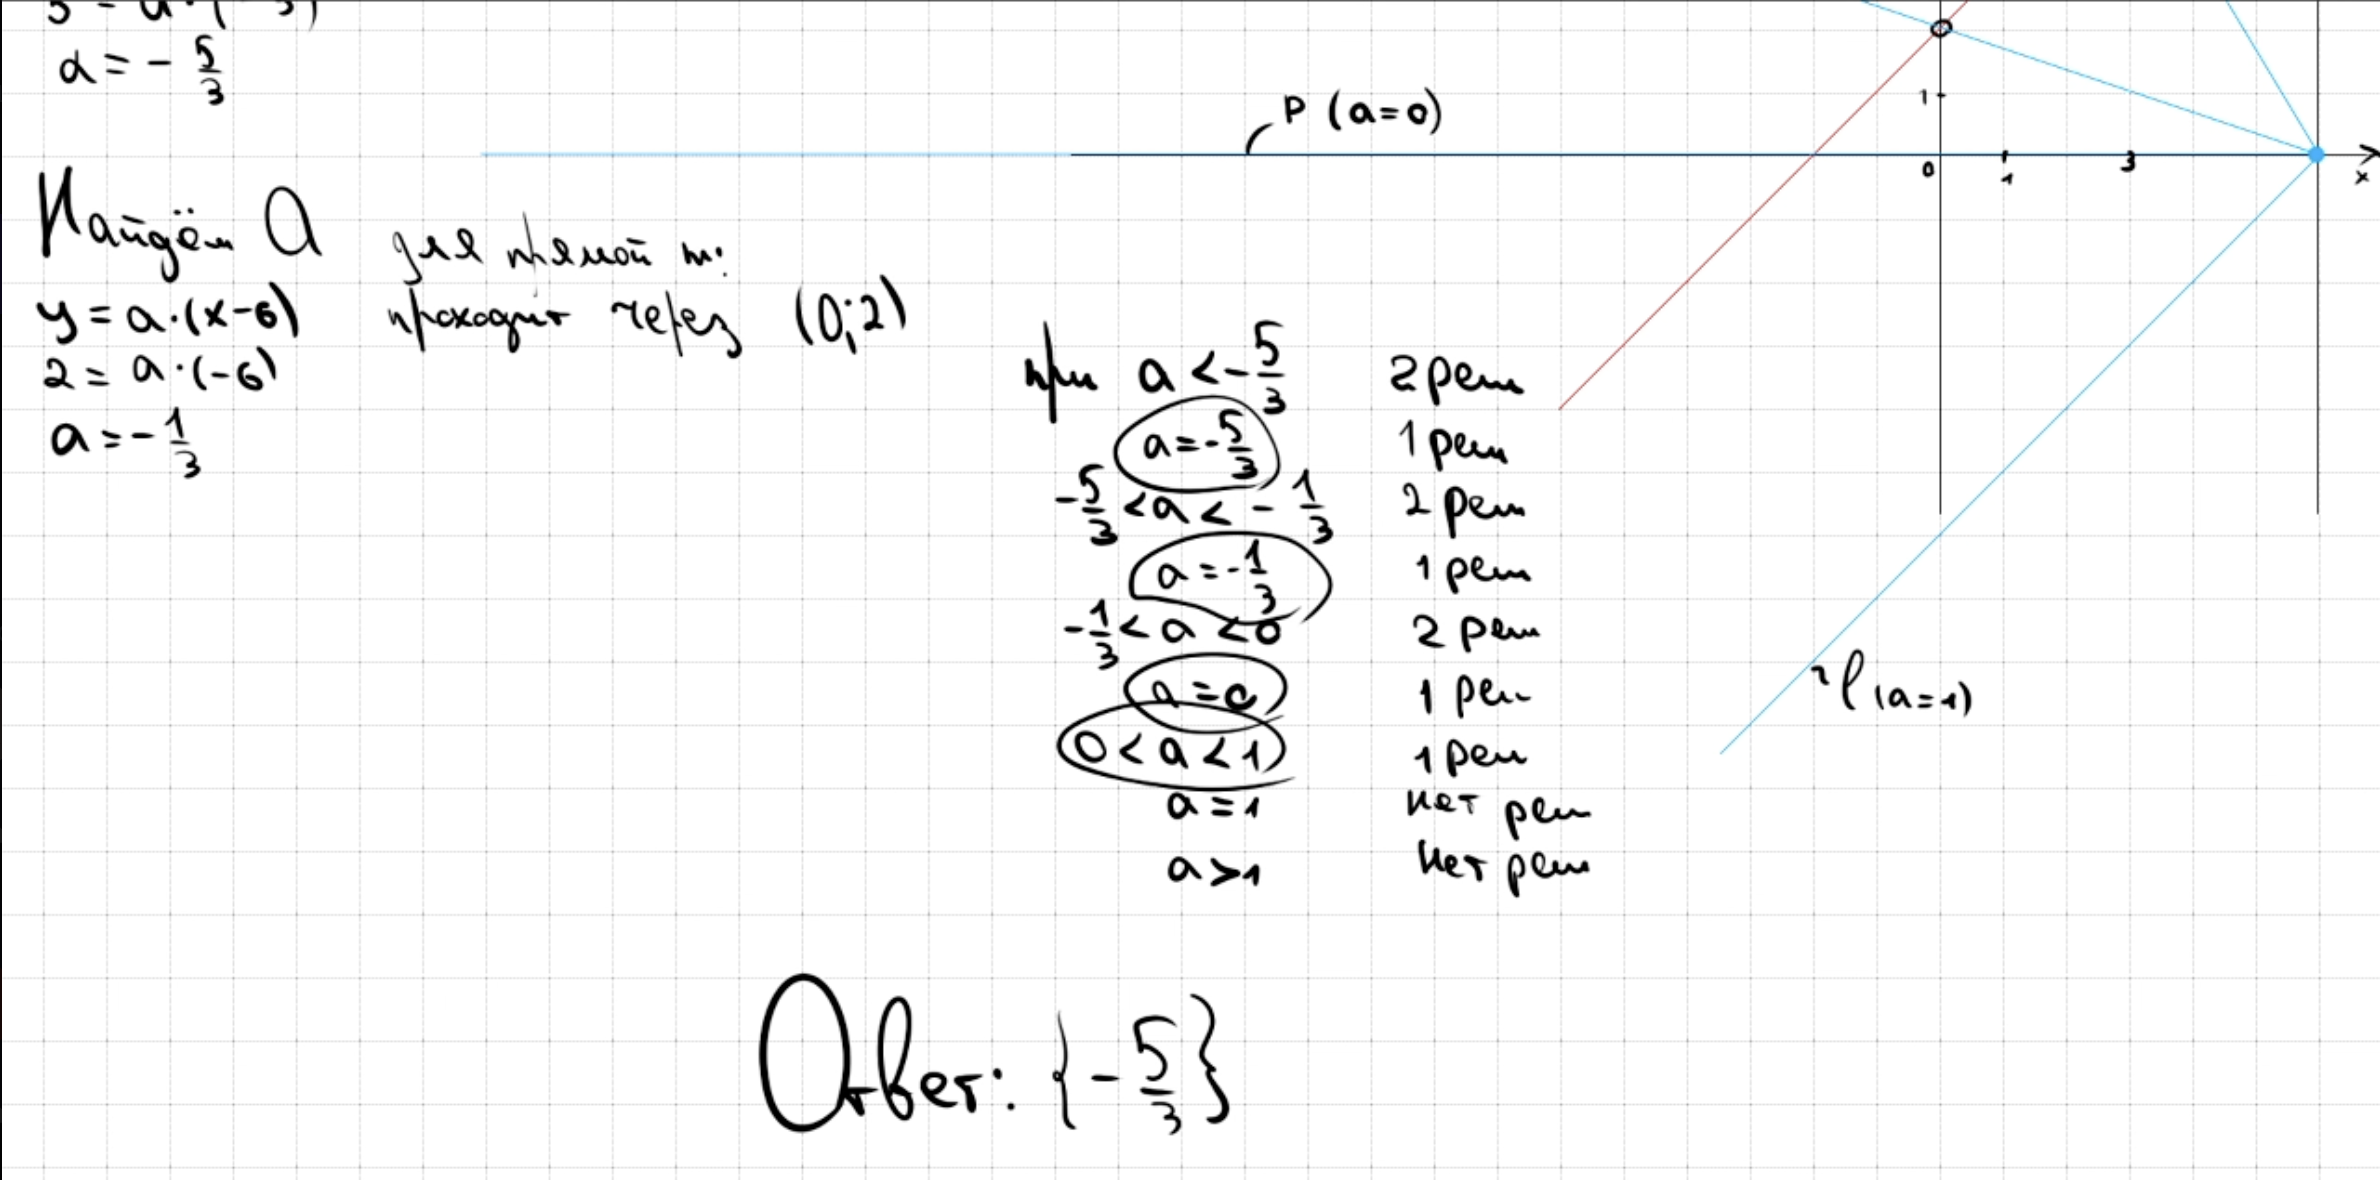 a = - 5/3
P (a=0)
1
0 1 3
x
Найдём a для прямой т:
y = a·(x-6) проходит через (0;2)
2 = a·(-6)
a = - 1/3
при a < - 5/3 2 реш
a = - 5/3 1 реш
- 5/3 < a < - 1/3 2 реш
a = - 1/3 1 реш
- 1/3 < a < 0 2 реш
a = 0 1 реш
0 < a < 1 1 реш
a = 1 нет реш
a > 1 нет реш
l (a=1)
Ответ: {- 5/3}